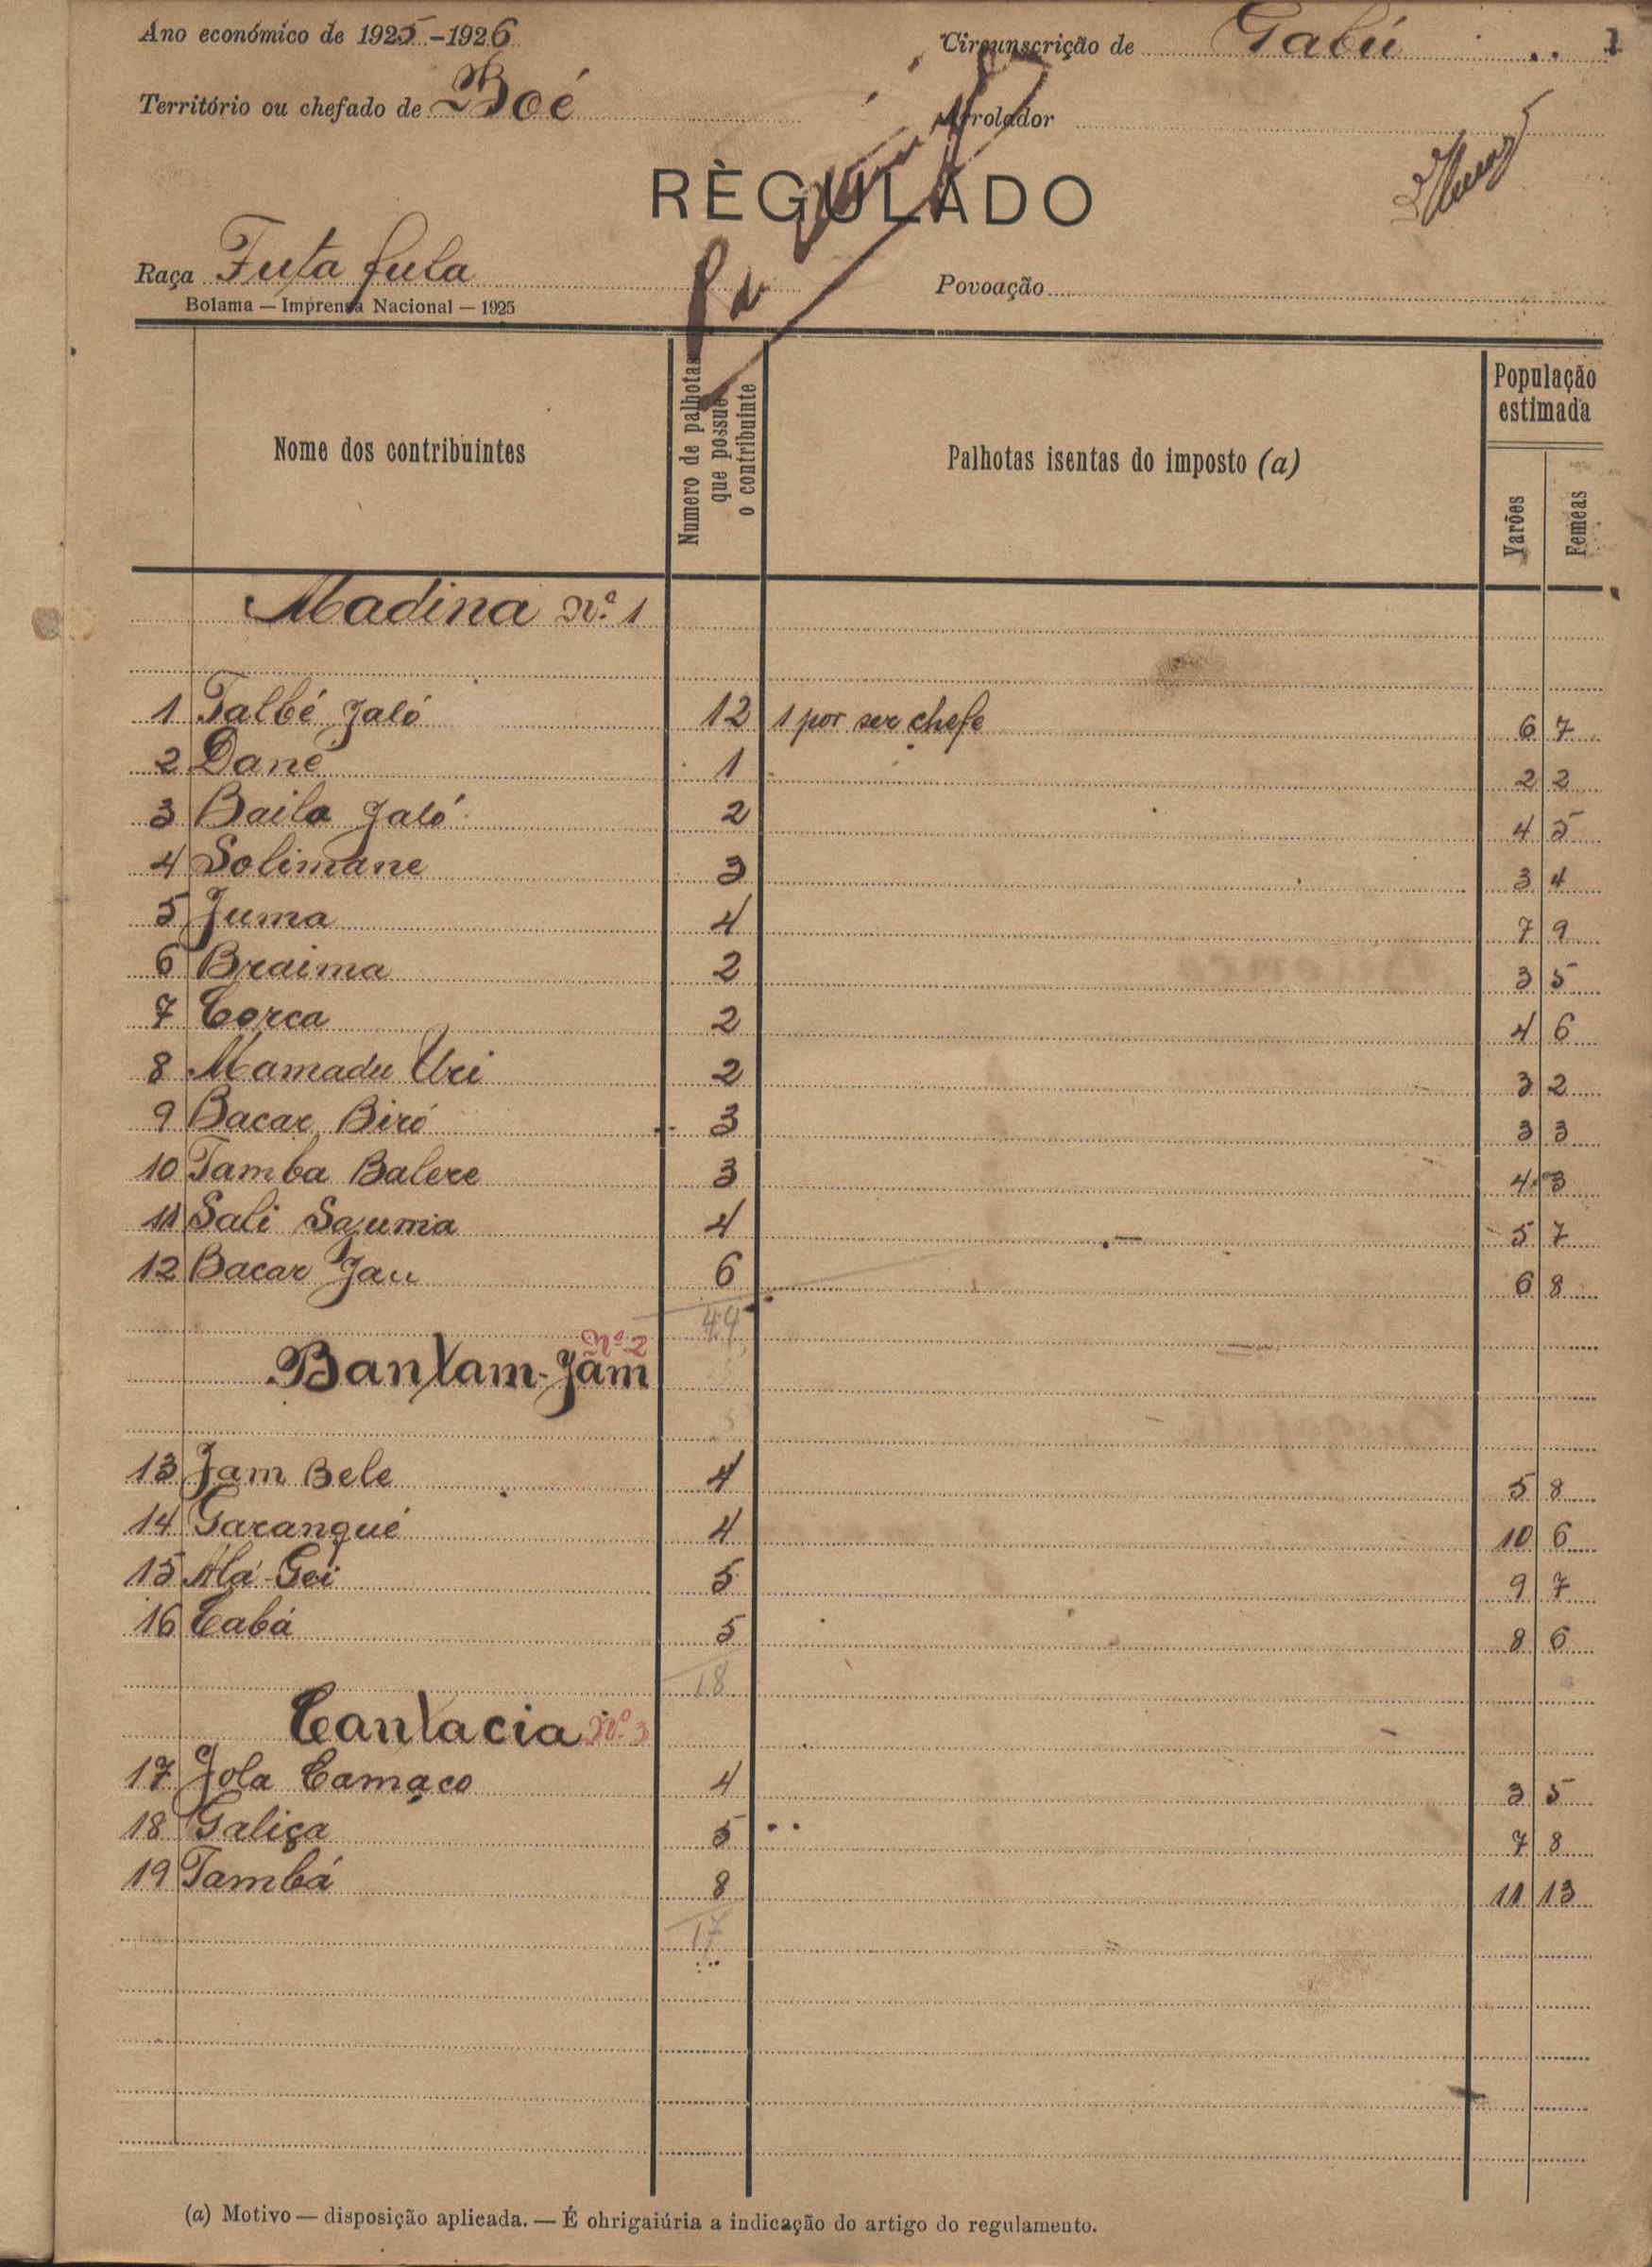 Ano económico de 1925-1926 Circunscrição de Gabú 1
Território ou chefado de Boé Arrolador
RÈGULADO
Raça Futa fula Povoação
Bolama — Imprensa Nacional — 1925
Nome dos contribuintes
Numero de palhotas que possue o contribuinte
Palhotas isentas do imposto (a)
População estimada
Varões Femeas
Madina Nº 1
1 Talbé Jaló 12 1 por ser chefe 6 7
2 Dané 1 2 2
3 Bailo Jaló 2 4 5
4 Solimane 3 3 4
5 Juma 4 7 9
6 Braima 2 3 5
7 Corca 2 4 6
8 Mamadu Uri 2 3 2
9 Bacar Biró 3 3 3
10 Tamba Balere 3 4 3
11 Sali Sauma 4 5 7
12 Bacar Jau 6 6 8
44
Nº 2
Bantam-Jam
13 Jam Bele 4 5 8
14 Garangué 4 10 6
15 Alá-Gei 5 9 7
16 Cabá 5 8 6
18
Cantacia Nº 3
17 Jola Camaço 4 3 5
18 Galiça 5 7 8
19 Tambá 8 11 13
17
(a) Motivo — disposição aplicada. — É ohrigaiúria a indicação do artigo do regulamento.